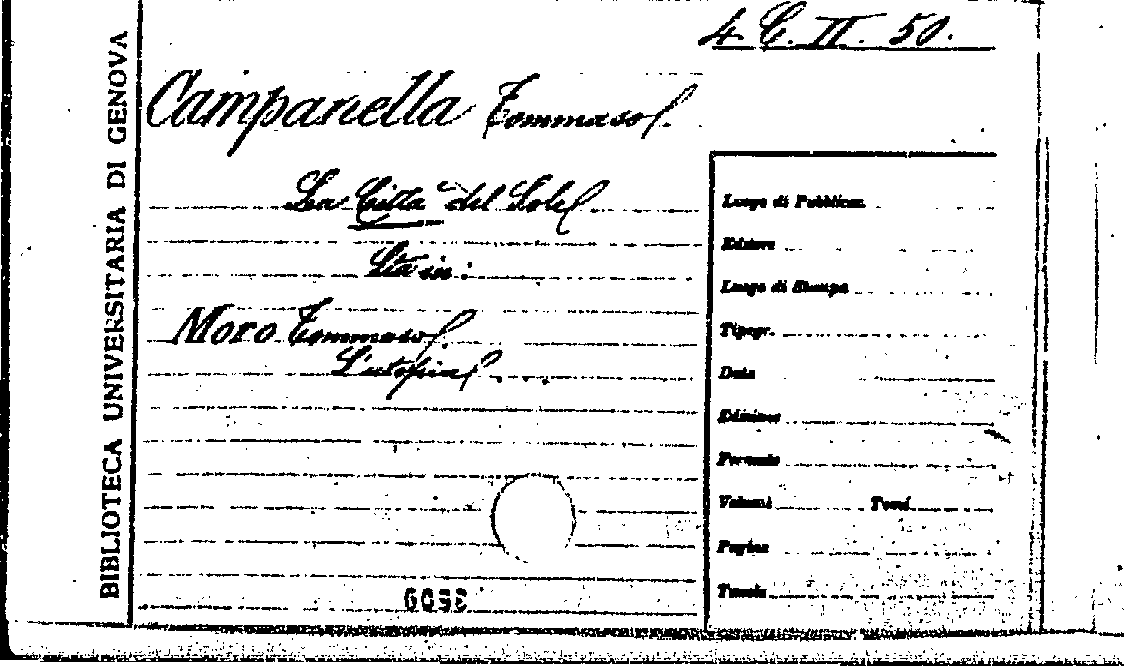 4. C. II. 50.
BIBLIOTECA UNIVERSITARIA DI GENOVA
Campanella Tommaso.
La Città del Sole
Sta in:
Moro Tommaso.
L'utopia
Luogo di Pubblicaz.
Editore
Luogo di Stampa
Tipogr.
Data
Edizione
Formato
Volumi Tomi
Pagine
Tavole